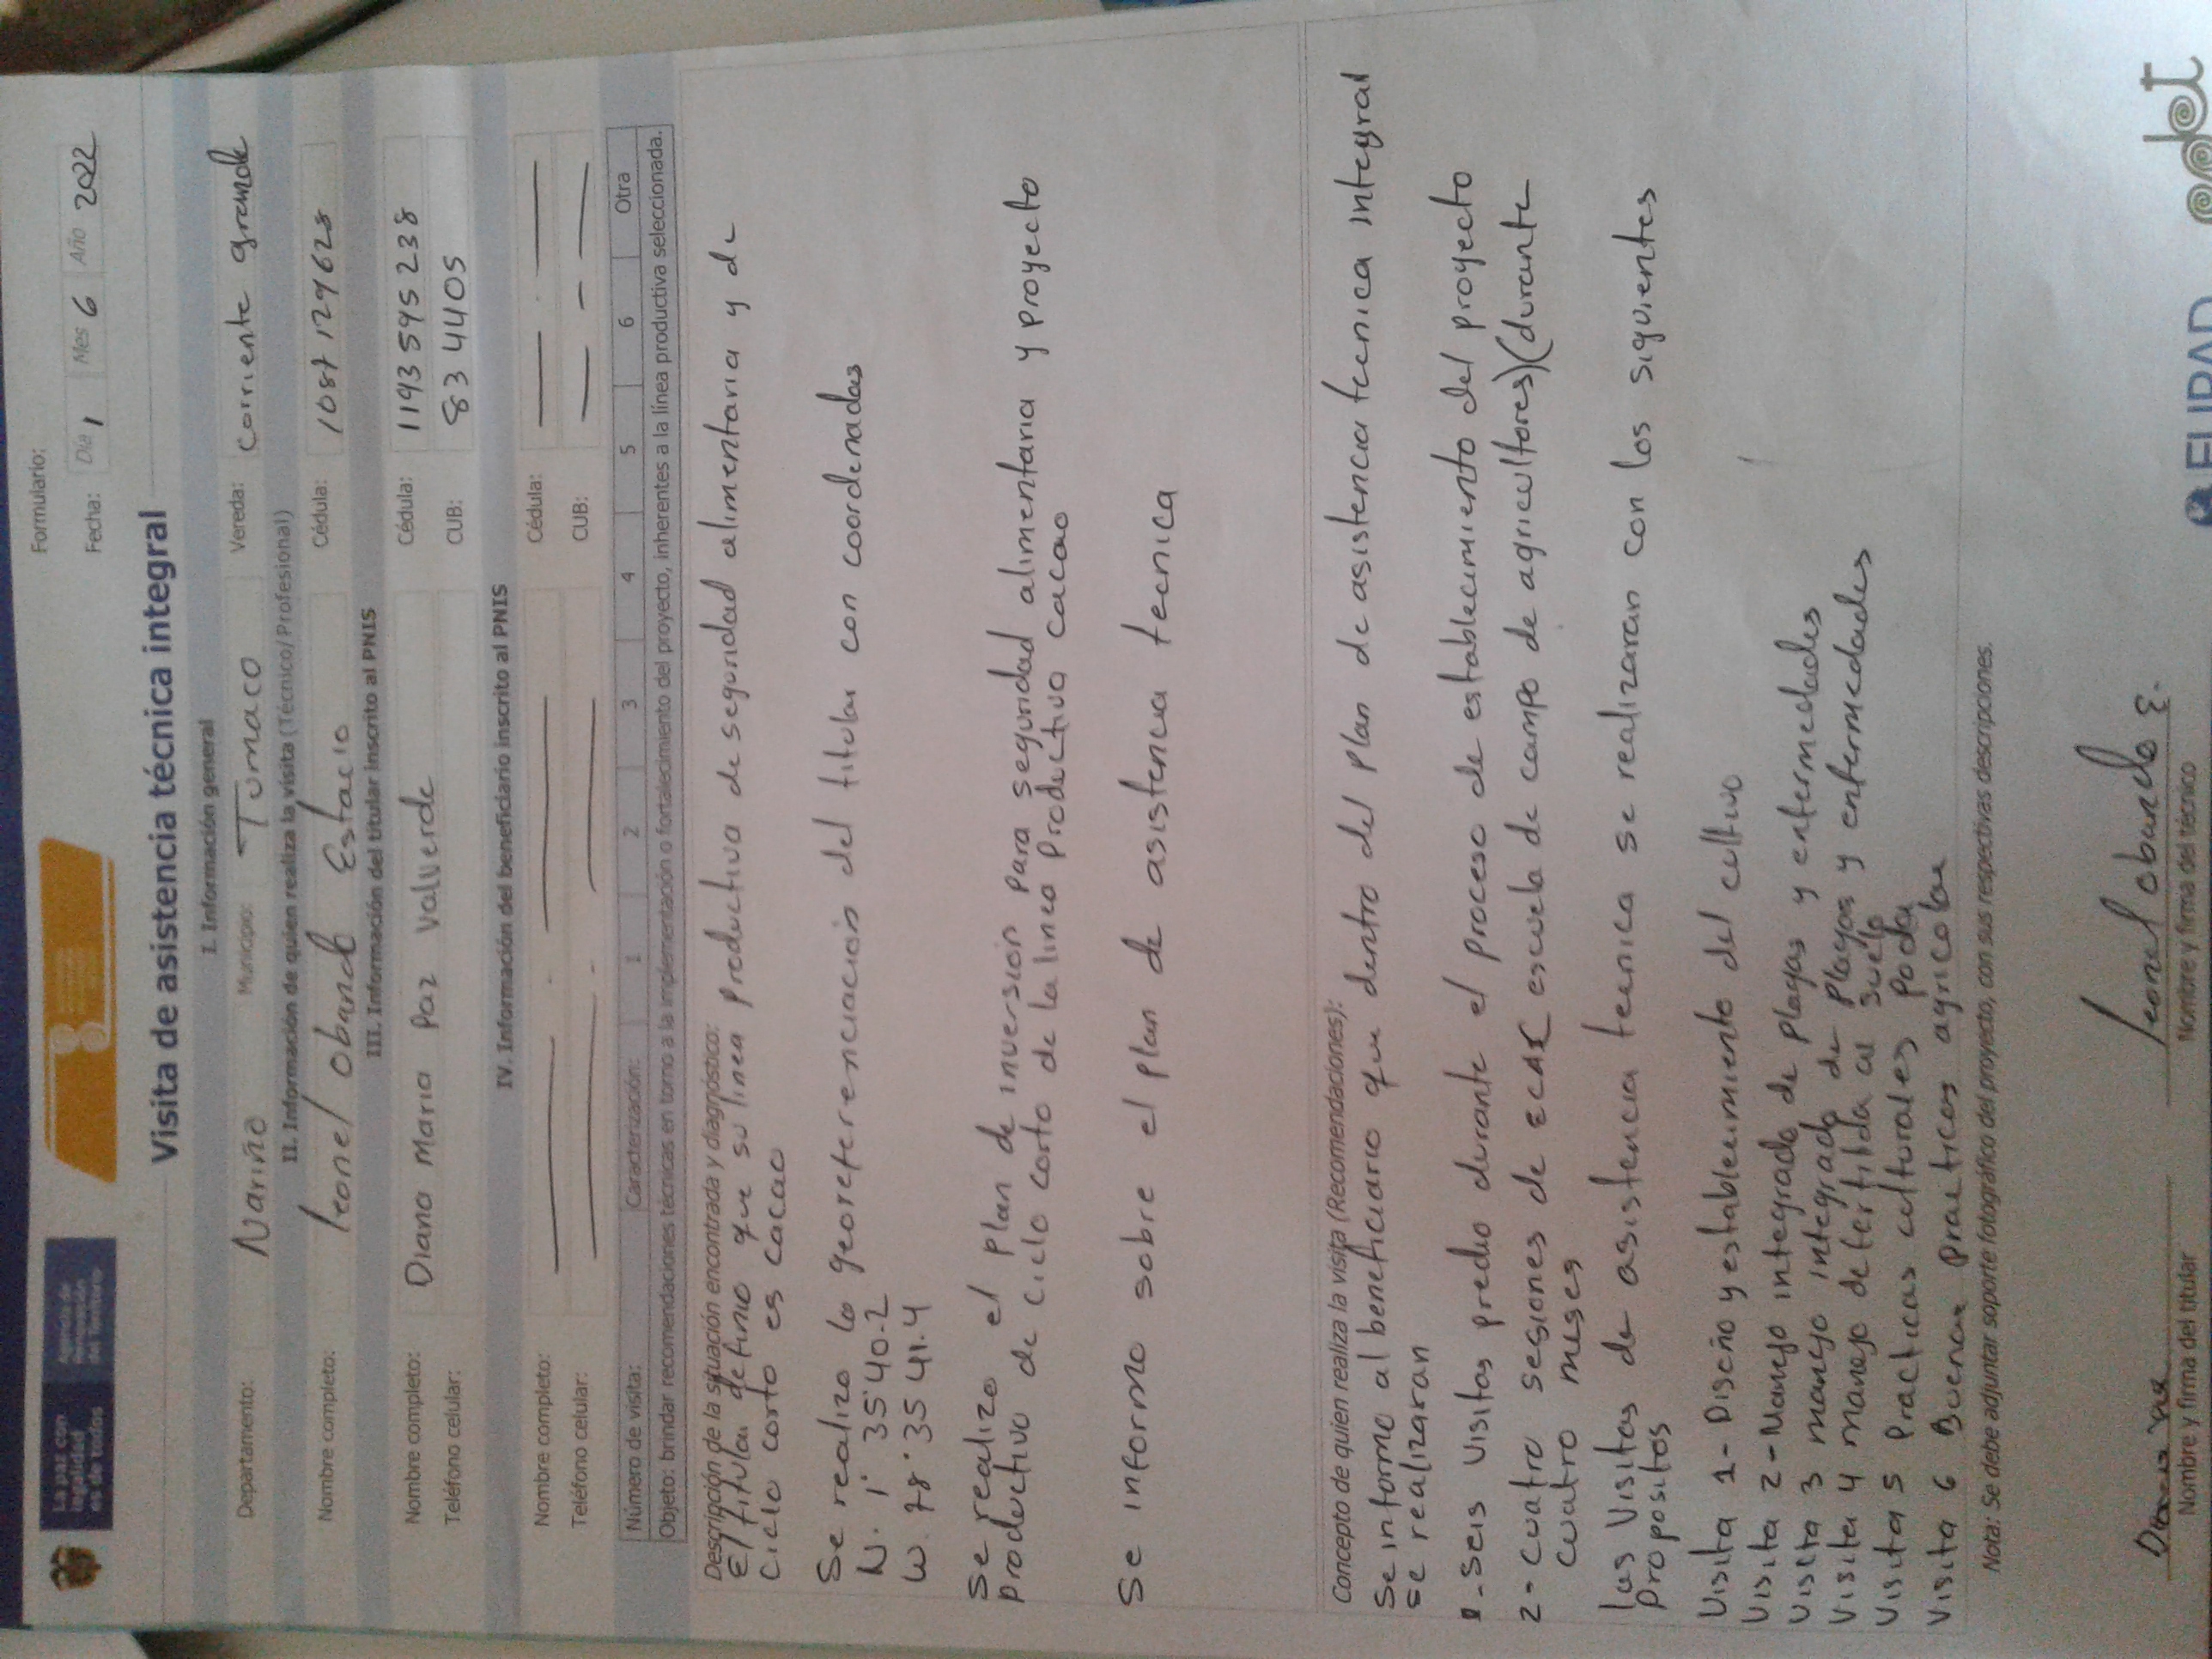 La paz con legalidad es de todos
Agencia de Renovación del Territorio
Formulario:
Fecha: Día 1 Mes 6 Año 2022
Visita de asistencia técnica integral
I. Información general
Departamento: Nariño Municipio: Tumaco Vereda: corriente grande
II. Información de quien realiza la visita (Técnico/Profesional)
Nombre completo: leonel obando Estacio Cédula: 1087129628
III. Información del titular inscrito al PNIS
Nombre completo: Diana Maria Paz Valverde Cédula: 1193595238
Teléfono celular: CUB: 8344405
IV. Información del beneficiario inscrito al PNIS
Nombre completo: Cédula:
Teléfono celular: CUB:
Número de visita: Caracterización: 1 2 3 4 5 6 Otra
Objeto: brindar recomendaciones técnicas en torno a la implementación o fortalecimiento del proyecto, inherentes a la línea productiva seleccionada.
Descripción de la situación encontrada y diagnóstico:
El titular definio que su linea productiva de seguridad alimentaria y de
ciclo corto es cacao
Se realizo la georeferenciacion del titular con coordenadas
N. 1° 35' 40.2
W. 78° 35 41.4
Se realizo el plan de inversion para seguridad alimentaria y proyecto
productivo de ciclo corto de la linea productiva cacao
Se informo sobre el plan de asistencia tecnica
Concepto de quien realiza la visita (Recomendaciones):
Se informo al beneficiario que dentro del plan de asistencia tecnica integral
se realizaran
1-Seis visitas predio durante el proceso de establecimiento del proyecto
2-cuatro sesiones de ECAS escuela de campo de agricultores)(durante
cuatro meses
las visitas de asistencia tecnica se realizaran con los siguientes
propositos
Visita 1-Diseño y establecimiento del cultivo
Visita 2-Manejo integrado de plagas y enfermedades
Visita 3 manejo integrado de plagas y enfermedades
Visita 4 manejo de fertilida al suelo
Visita 5 Practicas culturales poda
Visita 6 Buenas practicas agricolas
Nota: Se debe adjuntar soporte fotográfico del proyecto, con sus respectivas descripciones.
Diana
leonel obando E.
Nombre y firma del titular
Nombre y firma del técnico